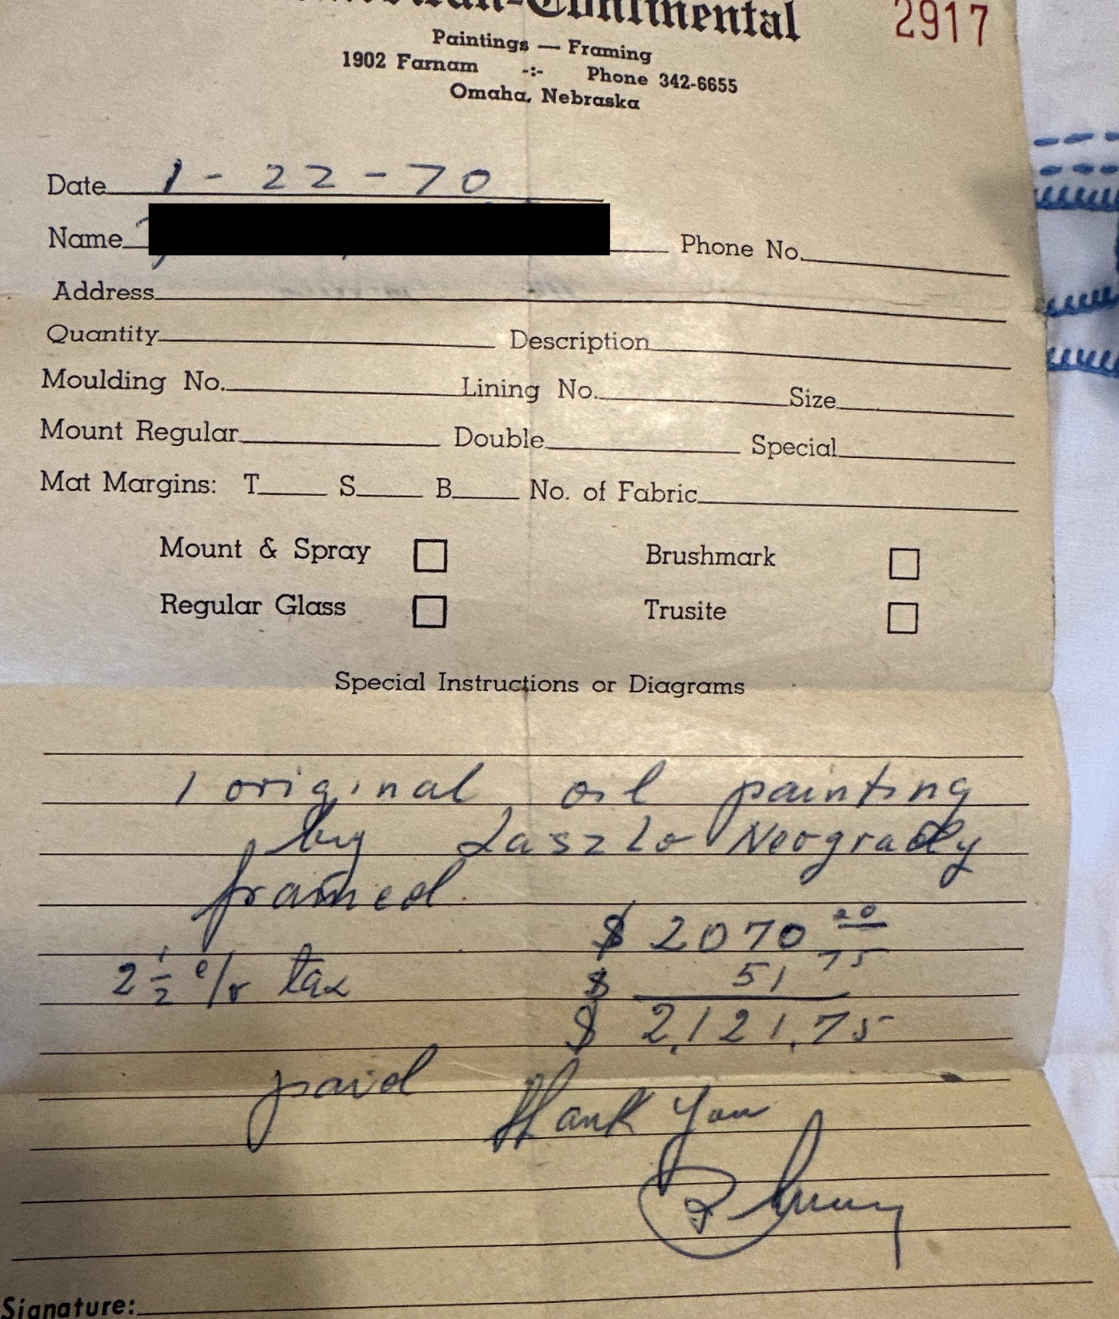 Continental 2917
Paintings — Framing
1902 Farnam -:- Phone 342-6655
Omaha, Nebraska
Date 1-22-70
Name Phone No.
Address
Quantity Description
Moulding No. Lining No. Size
Mount Regular Double Special
Mat Margins: T S B No. of Fabric
Mount & Spray Brushmark
Regular Glass Trusite
Special Instructions or Diagrams
1 original oil painting
by Laszlo Neogrady
framed.
$ 2070
2 1/2 % tax $ 51 75
$ 2,121.75
paid Thank You
Signature: